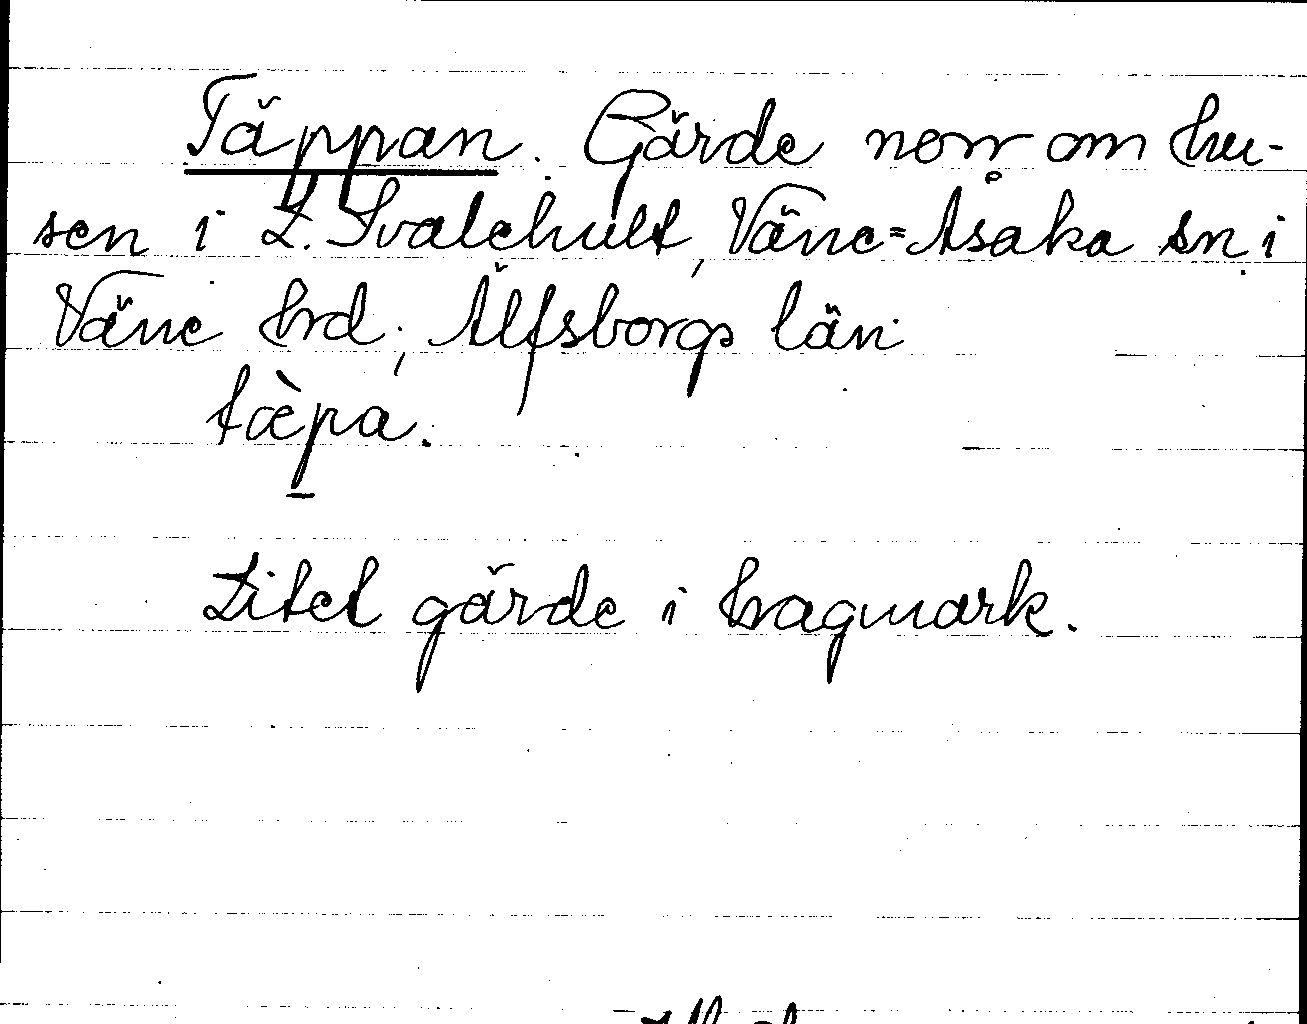 Täppan. Gärde norr om hu-
sen i L. Svalehult, Väne=Åsaka sn i
Väne hrd, Älfsborgs län
tæ̀pa.
Litet gärde i hagmark.